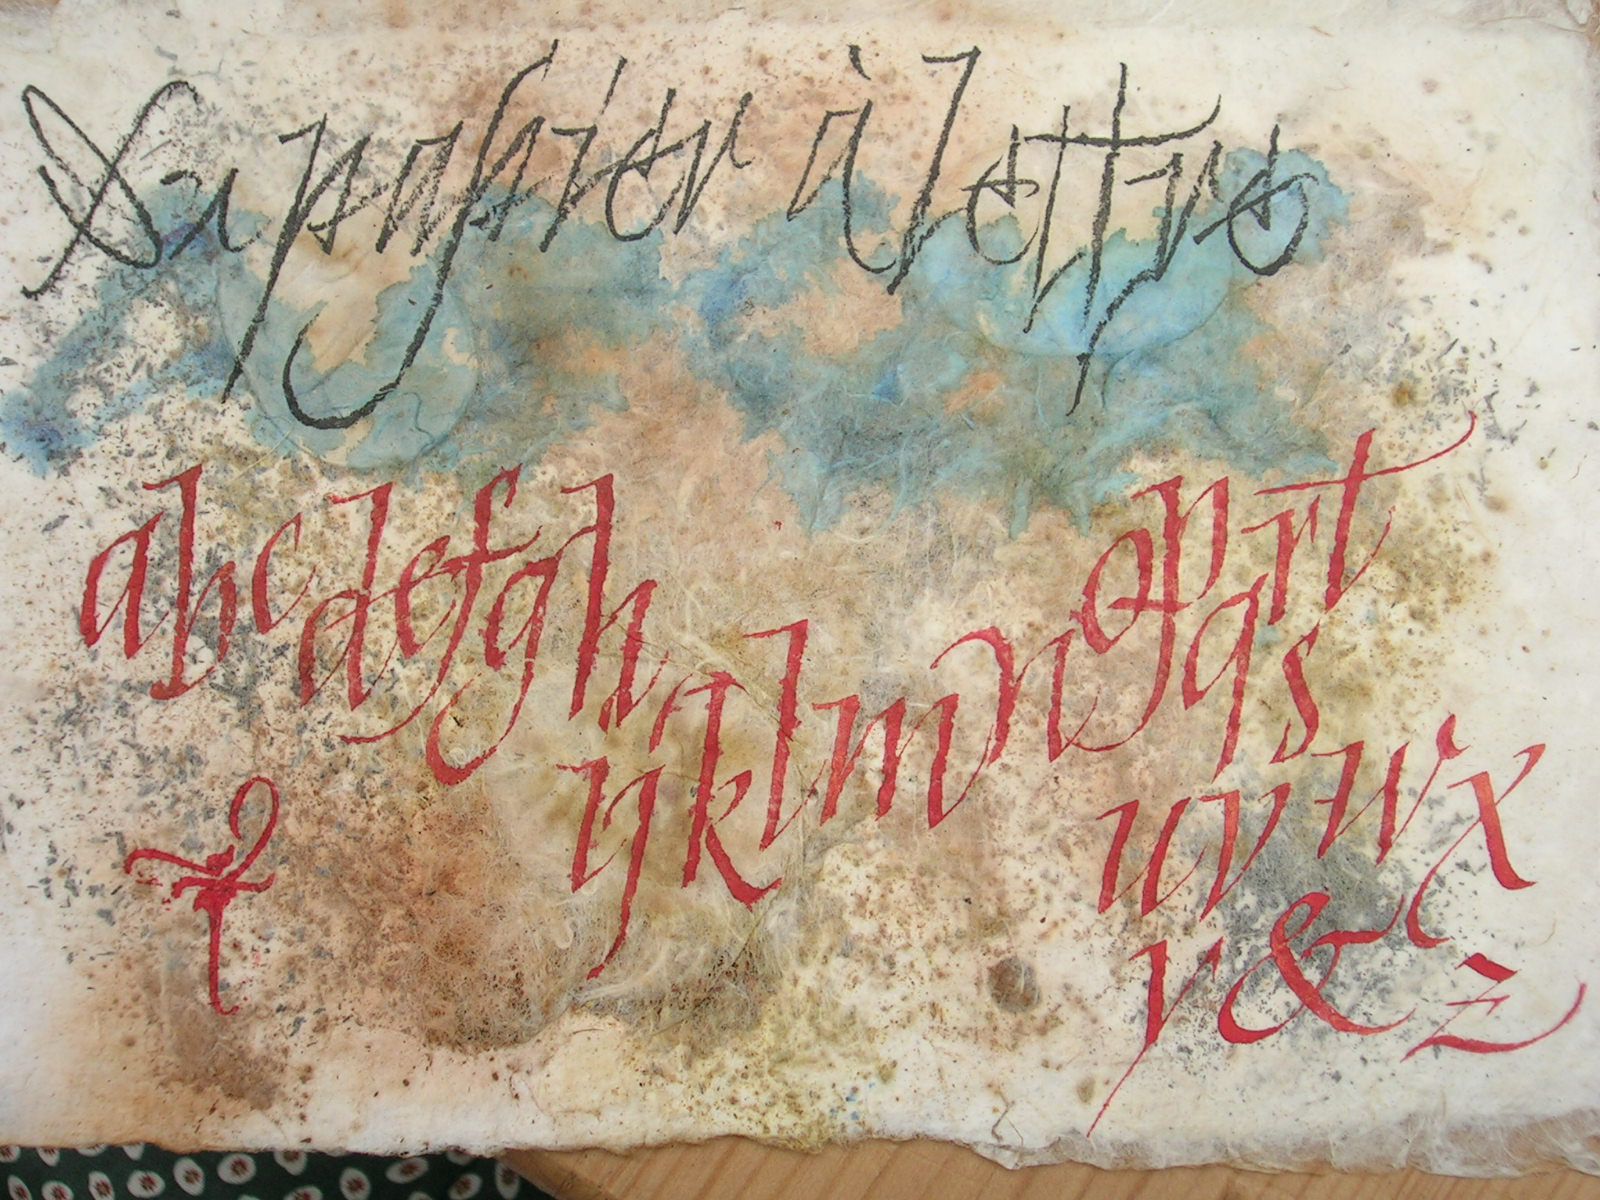 Du papier à lettres
abcdefgh
ijklmn
opqrst
uvwx
y&z